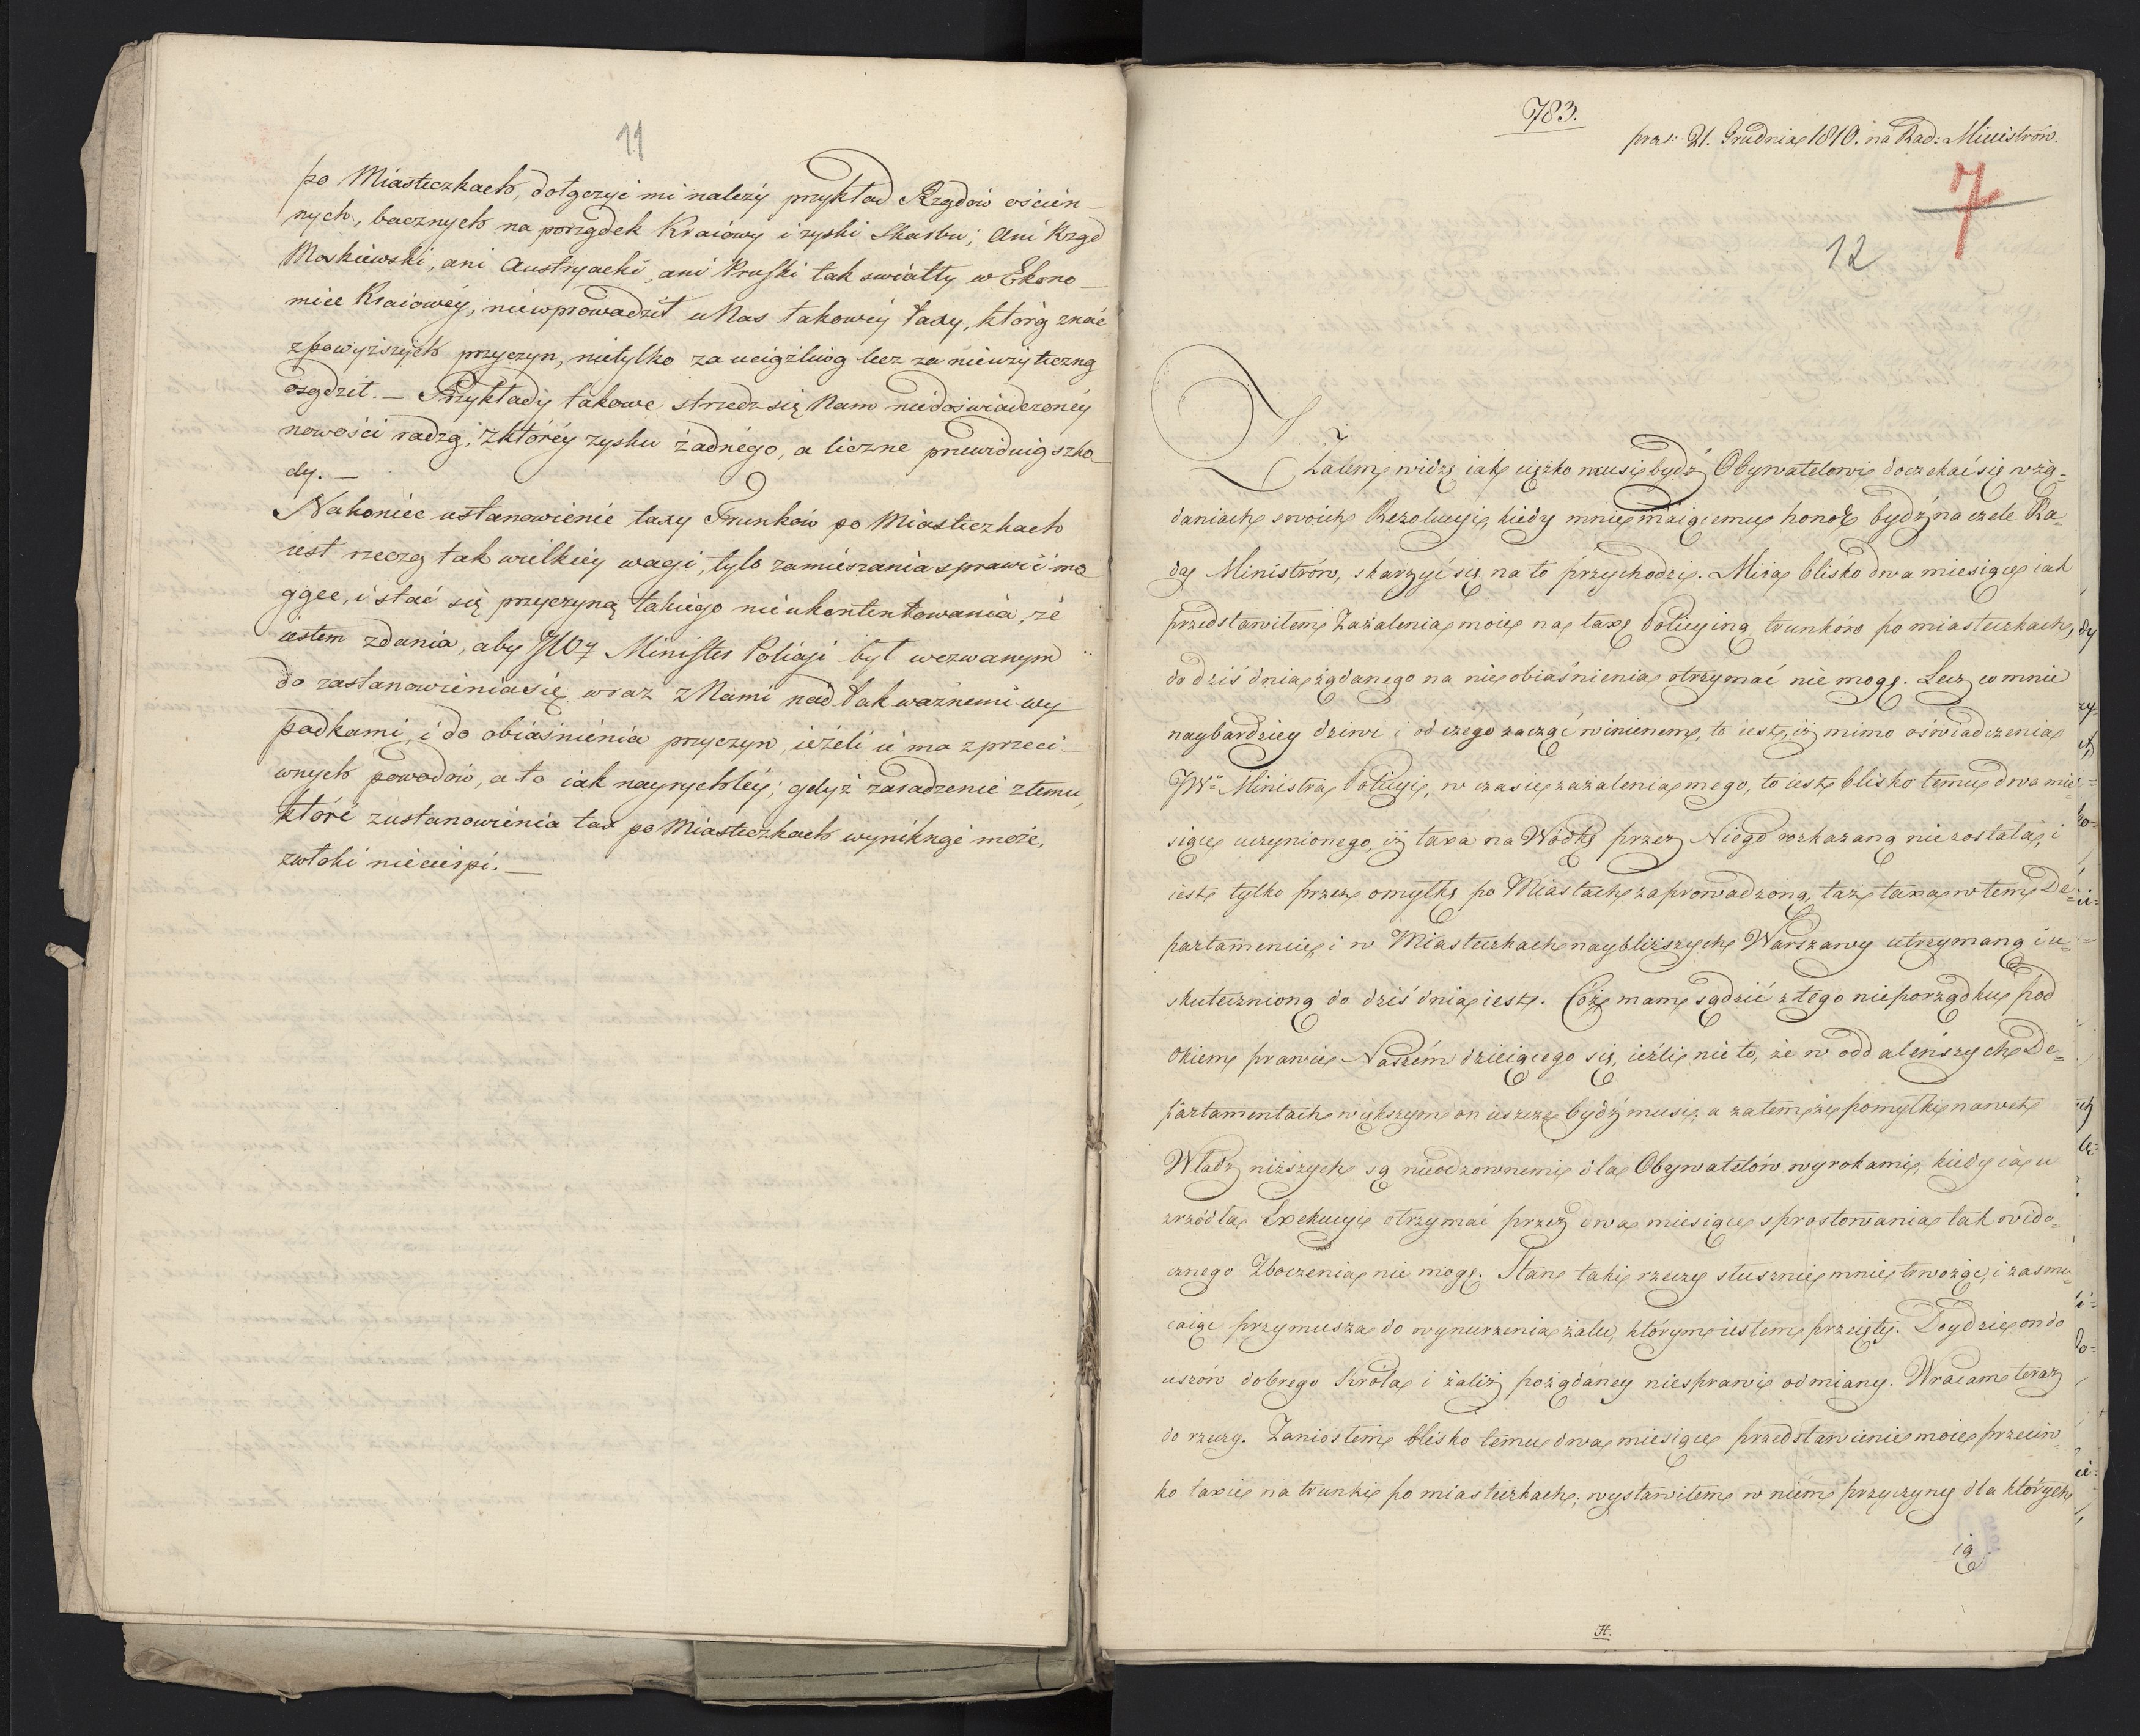 11
po Miasteczkach, dołączyć mi należy przykład Rządów ościen-
nych, bacznych na porządek Kraiowy i zyski Skarbu; Ani Rząd
Moskiewski, ani Austryacki, ani Pruski tak swiatły w Ekono-
mice Kraiowéy, niewprowadził u Nas takowéy taxy, którą znać
z powyższych przyczyn, nietylko za uciążliwą lecz za nieużyteczną
osądził. _ Przykłady takowe strzedz się Nam niedoświadczonéy
nowości radzą, z któréy zysku żadnégo, a liczne przewiduią szko-
dy. _
Nakoniec ustanowienie taxy Trunków po Miasteczkach
iest rzeczą tak wielkiéy wagi, tylo zamieszania sprawić mo
gące, i stać się przyczyną takiégo nieukontentowania, że
iestem zdania, aby JW Minister Policyi był wezwanym
do zastanowienia się wraz z Nami nad tak ważnemi wy
padkami, i do obiaśnienia przyczyn, ieżeli ié ma z przeci-
wnych powodów, a to iak nayrychléy; gdyż zaradzenie złemu,
któré z ustanowienia tax po Miasteczkach wyniknąć może,
zwłoki niecierpi. _
783.
prez: 21. Grudnia 1810. na Rad: Ministrów.
7
12
Z Żalem widzę iak ciężko musi bydź Obywatelowi doczekać się w żą=
daniach swoich Rezolucyi, kiedy mnie maiącemu honor bydź na czele Ra=
dy Ministrów, skarzyć się na to przychodzi. Miia blisko dwa miesiące iak
przedstawiłem Zażalenia moie na taxę Policyiną trunków po miasteczkach,
do dziś dnia żądanego na nie obiaśnienia otrzymać nie mogę. Lecz co mnie
naybardziey dziwi i od czego zacząć winienem, to iest, iż mimo oświadczenia
JW° Ministra Policyi, w czasie zażalenia mego, to iest blisko temu dwa mie=
siące uczynionego, iż taxa na Wódkę przez Niego rozkazaną nie została, i
iest tylko przez omyłkę po Miastach zaprowadzoną, taż taxa w tem De=
partamencie, i w Miasteczkach naybliższych Warszawy utrzymaną i u=
skutecznioną do dziś dnia iest. Cóż mam sądzić z tego nieporządku pod
okiem prawie Naszém dzieiącego się, ieźli nie to, że w oddaleńszych De=
partamentach większym on ieszcze bydź musi, a zatem że pomyłki nawet
Władz niższych są nieodzownemi dla Obywatelów wyrokami, kiedy ia u
zrzódła Exekucyi otrzymać przez dwa miesiące sprostowania tak wido=
cznego Zboczenia nie mogę. Stan taki rzeczy słusznie mnie trwożąc, i zasmu=
caiąc przymusza do wynurzenia żalu, którym iestem przeięty. Doydzie on do
uszów dobrego Króla i żaliż pożądáney niesprawi odmiany. Wracam teraz
do rzeczy. Zaniosłem blisko temu dwa miesiące przedstawienie moie przeciw=
ko taxie na trunki po miasteczkach; wystawiłem w niém przyczyny dla których
ią
H.